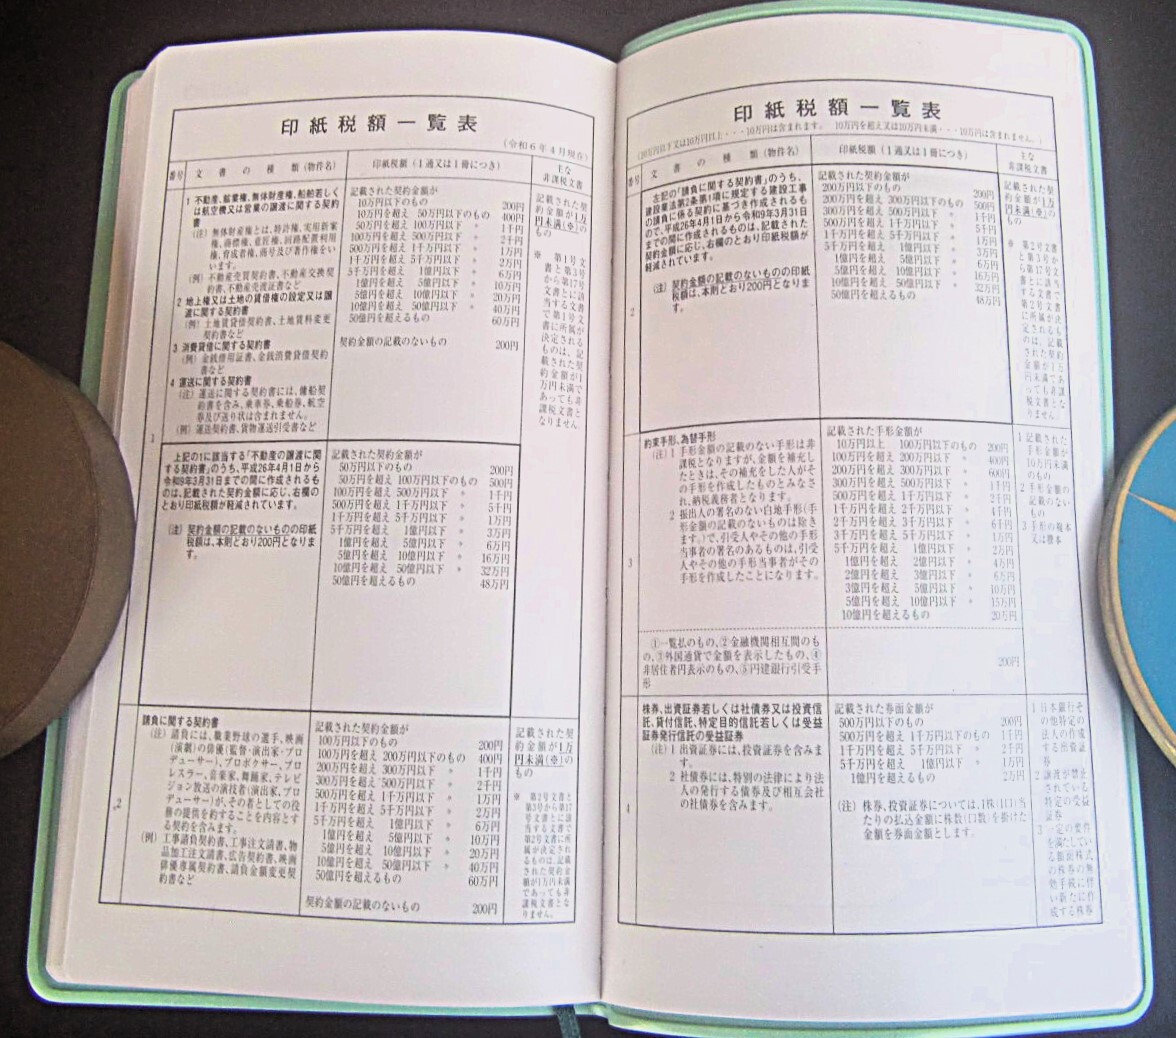 印紙税額一覧表
(令和6年4月現在)
番号 文書の種類(物件名) 印紙税額(1通又は1冊につき) 主な非課税文書
1
1 不動産、鉱業権、無体財産権、船舶若しく
は航空機又は営業の譲渡に関する契約
書
(注) 無体財産権とは、特許権、実用新案
権、商標権、意匠権、回路配置利用
権、育成者権、商号及び著作権をい
います。
(例) 不動産売買契約書、不動産交換契
約書、不動産売渡証書など
2 地上権又は土地の賃借権の設定又は譲
渡に関する契約書
(例) 土地賃貸借契約書、土地賃料変更
契約書など
3 消費貸借に関する契約書
(例) 金銭借用証書、金銭消費貸借契約
書など
4 運送に関する契約書
(注) 運送に関する契約書には、傭船契
約書を含み、乗車券、乗船券、航空
券及び送り状は含まれません。
(例) 運送契約書、貨物運送引受書など
記載された契約金額が
10万円以下のもの 200円
10万円を超え 50万円以下のもの 400円
50万円を超え 100万円以下 〃 1千円
100万円を超え 500万円以下 〃 2千円
500万円を超え 1千万円以下 〃 1万円
1千万円を超え 5千万円以下 〃 2万円
5千万円を超え 1億円以下 〃 6万円
1億円を超え 5億円以下 〃 10万円
5億円を超え 10億円以下 〃 20万円
10億円を超え 50億円以下 〃 40万円
50億円を超えるもの 60万円
契約金額の記載のないもの 200円
記載された契
約金額が1万
円未満(※)の
もの
※ 第1号文
書と第3号
から第17号
文書とに該
当する文書
で第1号文
書に所属が
決定される
ものは、記
載された契
約金額が1
万円未満で
あっても非
課税文書と
なりません。
上記の1に該当する「不動産の譲渡に関
する契約書」のうち、平成26年4月1日から
令和9年3月31日までの間に作成されるも
のは、記載された契約金額に応じ、右欄の
とおり印紙税額が軽減されています。
(注) 契約金額の記載のないものの印紙
税額は、本則どおり200円となりま
す。
記載された契約金額が
50万円以下のもの 200円
50万円を超え 100万円以下のもの 500円
100万円を超え 500万円以下 〃 1千円
500万円を超え 1千万円以下 〃 5千円
1千万円を超え 5千万円以下 〃 1万円
5千万円を超え 1億円以下 〃 3万円
1億円を超え 5億円以下 〃 6万円
5億円を超え 10億円以下 〃 16万円
10億円を超え 50億円以下 〃 32万円
50億円を超えるもの 48万円
2
請負に関する契約書
(注) 請負には、職業野球の選手、映画
(演劇)の俳優(監督・演出家・プロ
デューサー)、プロボクサー、プロ
レスラー、音楽家、舞踊家、テレビ
ジョン放送の演技者(演出家、プロ
デューサー)が、その者としての役
務の提供を約することを内容とす
る契約を含みます。
(例) 工事請負契約書、工事注文請書、物
品加工注文請書、広告契約書、映画
俳優専属契約書、請負金額変更契
約書など
記載された契約金額が
100万円以下のもの 200円
100万円を超え 200万円以下のもの 400円
200万円を超え 300万円以下 〃 1千円
300万円を超え 500万円以下 〃 2千円
500万円を超え 1千万円以下 〃 1万円
1千万円を超え 5千万円以下 〃 2万円
5千万円を超え 1億円以下 〃 6万円
1億円を超え 5億円以下 〃 10万円
5億円を超え 10億円以下 〃 20万円
10億円を超え 50億円以下 〃 40万円
50億円を超えるもの 60万円
契約金額の記載のないもの 200円
記載された契
約金額が1万
円未満(※)の
もの
※ 第2号文書と
第3号から第17
号文書とに該
当する文書で
第2号文書に所
属が決定され
るものは、記載
された契約金
額が1万円未満
であっても非
課税文書とな
りません。
印紙税額一覧表
(10万円以下又は10万円以上・・・10万円は含まれます。 10万円を超え又は10万円未満・・・10万円は含まれません。)
番号 文書の種類(物件名) 印紙税額(1通又は1冊につき) 主な非課税文書
2
左記の「請負に関する契約書」のうち、
建設業法第2条第1項に規定する建設工事
の請負に係る契約に基づき作成されるも
ので、平成26年4月1日から令和9年3月31日
までの間に作成されるものは、記載された
契約金額に応じ、右欄のとおり印紙税額が
軽減されています。
(注) 契約金額の記載のないものの印紙
税額は、本則どおり200円となりま
す。
記載された契約金額が
200万円以下のもの 200円
200万円を超え 300万円以下のもの 500円
300万円を超え 500万円以下 〃 1千円
500万円を超え 1千万円以下 〃 5千円
1千万円を超え 5千万円以下 〃 1万円
5千万円を超え 1億円以下 〃 3万円
1億円を超え 5億円以下 〃 6万円
5億円を超え 10億円以下 〃 16万円
10億円を超え 50億円以下 〃 32万円
50億円を超えるもの 48万円
記載された契
約金額が1万
円未満(※)の
もの
※ 第2号文書
と第3号か
ら第17号文
書とに該当
する文書で
第2号文書
に所属が決
定されるも
のは、記載
された契約
金額が1万
円未満であ
っても非課
税文書とな
りません。
3
約束手形、為替手形
(注) 1 手形金額の記載のない手形は非
課税となりますが、金額を補充し
たときは、その補充をした人がそ
の手形を作成したものとみなさ
れ、納税義務者となります。
2 振出人の署名のない白地手形(手
形金額の記載のないものは除き
ます。)で、引受人やその他の手形
当事者の署名のあるものは、引受
人やその他の手形当事者がその
手形を作成したことになります。
記載された手形金額が
10万円以上 100万円以下のもの 200円
100万円を超え 200万円以下 〃 400円
200万円を超え 300万円以下 〃 600円
300万円を超え 500万円以下 〃 1千円
500万円を超え 1千万円以下 〃 2千円
1千万円を超え 2千万円以下 〃 4千円
2千万円を超え 3千万円以下 〃 6千円
3千万円を超え 5千万円以下 〃 1万円
5千万円を超え 1億円以下 〃 2万円
1億円を超え 2億円以下 〃 4万円
2億円を超え 3億円以下 〃 6万円
3億円を超え 5億円以下 〃 10万円
5億円を超え 10億円以下 〃 15万円
10億円を超えるもの 20万円
1 記載された
手形金額が
10万円未満
のもの
2 手形金額の
記載のない
もの
3 手形の複本
又は謄本
①一覧払のもの、②金融機関相互間のも
の、③外国通貨で金額を表示したもの、④
非居住者円表示のもの、⑤円建銀行引受手
形
200円
4
株券、出資証券若しくは社債券又は投資信
託、貸付信託、特定目的信託若しくは受益
証券発行信託の受益証券
(注) 1 出資証券には、投資証券を含みま
す。
2 社債券には、特別の法律により法
人の発行する債券及び相互会社
の社債券を含みます。
記載された券面金額が
500万円以下のもの 200円
500万円を超え 1千万円以下のもの 1千円
1千万円を超え 5千万円以下 〃 2千円
5千万円を超え 1億円以下 〃 1万円
1億円を超えるもの 2万円
(注) 株券、投資証券については、1株(1口)当
たりの払込金額に株数(口数)を掛けた
金額を券面金額とします。
1 日本銀行そ
の他特定の
法人の作成
する出資証
券
2 譲渡が禁止
されている
特定の受益
証券
3 一定の要件
を満たしてい
る額面株式
の株券の無
効手続に伴
い新たに作
成する株券